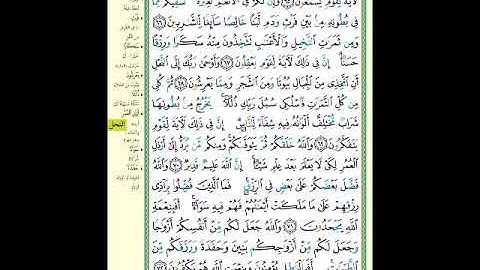 لَآيَةً لِّقَوْمٍ يَسْمَعُونَ ۝٦٥ وَإِنَّ لَكُمْ فِي ٱلْأَنْعَٰمِ لَعِبْرَةً ۖ نُّسْقِيكُم مِّمَّا
فِي بُطُونِهِۦ مِنۢ بَيْنِ فَرْثٍ وَدَمٍ لَّبَنًا خَالِصًا سَآئِغًا لِّلشَّٰرِبِينَ ۝٦٦
وَمِن ثَمَرَٰتِ ٱلنَّخِيلِ وَٱلْأَعْنَٰبِ تَتَّخِذُونَ مِنْهُ سَكَرًا وَرِزْقًا
حَسَنًا ۗ إِنَّ فِي ذَٰلِكَ لَآيَةً لِّقَوْمٍ يَعْقِلُونَ ۝٦٧ وَأَوْحَىٰ رَبُّكَ إِلَى ٱلنَّحْلِ
أَنِ ٱتَّخِذِي مِنَ ٱلْجِبَالِ بُيُوتًا وَمِنَ ٱلشَّجَرِ وَمِمَّا يَعْرِشُونَ ۝٦٨ ثُمَّ كُلِي
مِن كُلِّ ٱلثَّمَرَٰتِ فَٱسْلُكِي سُبُلَ رَبِّكِ ذُلُلًا ۚ يَخْرُجُ مِنۢ بُطُونِهَا
شَرَابٌ مُّخْتَلِفٌ أَلْوَٰنُهُۥ فِيهِ شِفَآءٌ لِّلنَّاسِ ۗ إِنَّ فِي ذَٰلِكَ لَآيَةً لِّقَوْمٍ
يَتَفَكَّرُونَ ۝٦٩ وَٱللَّهُ خَلَقَكُمْ ثُمَّ يَتَوَفَّىٰكُمْ ۚ وَمِنكُم مَّن يُرَدُّ إِلَىٰٓ أَرْذَلِ
ٱلْعُمُرِ لِكَيْ لَا يَعْلَمَ بَعْدَ عِلْمٍ شَيْـًٔا ۚ إِنَّ ٱللَّهَ عَلِيمٌ قَدِيرٌ ۝٧٠ وَٱللَّهُ
فَضَّلَ بَعْضَكُمْ عَلَىٰ بَعْضٍ فِي ٱلرِّزْقِ ۚ فَمَا ٱلَّذِينَ فُضِّلُوا۟ بِرَآدِّي
رِزْقِهِمْ عَلَىٰ مَا مَلَكَتْ أَيْمَٰنُهُمْ فَهُمْ فِيهِ سَوَآءٌ ۚ أَفَبِنِعْمَةِ
ٱللَّهِ يَجْحَدُونَ ۝٧١ وَٱللَّهُ جَعَلَ لَكُم مِّنْ أَنفُسِكُمْ أَزْوَٰجًا
وَجَعَلَ لَكُم مِّنْ أَزْوَٰجِكُم بَنِينَ وَحَفَدَةً وَرَزَقَكُم مِّنَ
ٱلطَّيِّبَٰتِ ۚ أَفَبِٱلْبَٰطِلِ يُؤْمِنُونَ وَبِنِعْمَتِ ٱللَّهِ هُمْ يَكْفُرُونَ ۝٧٢
النحل